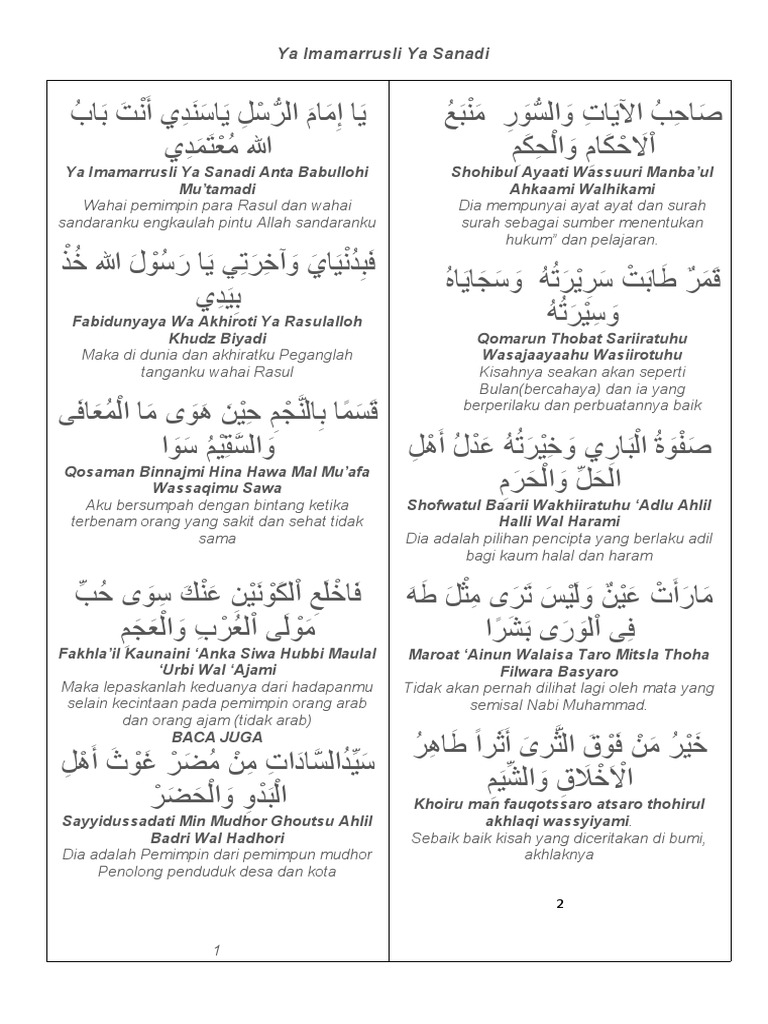 Ya Imamarrusli Ya Sanadi
يَا إِمَامَ الرُّسْلِ يَاسَنَدِي أَنْتَ بَابُ
الله مُعْتَمَدِي
Ya Imamarrusli Ya Sanadi Anta Babullohi
Mu'tamadi
Wahai pemimpin para Rasul dan wahai
sandaranku engkaulah pintu Allah sandaranku
فَبِدُنْيَايَ وَآخِرَتِي يَا رَسُوْلَ الله خُذْ
بِيَدِي
Fabidunyaya Wa Akhiroti Ya Rasulalloh
Khudz Biyadi
Maka di dunia dan akhiratku Peganglah
tanganku wahai Rasul
قَسَمًا بِالنَّجْمِ حِيْنَ هَوَى مَا الْمُعَافَى
وَالسَّقِيْمُ سَوَا
Qosaman Binnajmi Hina Hawa Mal Mu'afa
Wassaqimu Sawa
Aku bersumpah dengan bintang ketika
terbenam orang yang sakit dan sehat tidak
sama
فَاخْلَعِ ٱلكَوْنَيْنِ عَنْكَ سِوَى حُبِّ
مَوْلَى ٱلعُرْبِ وَالْعَجَمِ
Fakhla'il Kaunaini 'Anka Siwa Hubbi Maulal
'Urbi Wal 'Ajami
Maka lepaskanlah keduanya dari hadapanmu
selain kecintaan pada pemimpin orang arab
dan orang ajam (tidak arab)
BACA JUGA
سَيِّدُالسَّادَاتِ مِنْ مُضَرْ غَوْثَ أَهْلِ
الْبَدْوِ وَالْحَضَرْ
Sayyidussadati Min Mudhor Ghoutsu Ahlil
Badri Wal Hadhori
Dia adalah Pemimpin dari pemimpun mudhor
Penolong penduduk desa dan kota
1
صَاحِبُ الآيَاتِ وَالسُّوَرِ مَنْبَعُ
ٱلَاحْكَامِ وَالْحِكَمِ
Shohibul Ayaati Wassuuri Manba'ul
Ahkaami Walhikami
Dia mempunyai ayat ayat dan surah
surah sebagai sumber menentukan
hukum" dan pelajaran.
قَمَرٌ طَابَتْ سَرِيْرَتُهُ وَسَجَايَاهُ
وَسِيْرَتُهُ
Qomarun Thobat Sariiratuhu
Wasajaayaahu Wasiirotuhu
Kisahnya seakan akan seperti
Bulan(bercahaya) dan ia yang
berperilaku dan perbuatannya baik
صَفْوَةُ الْبَارِي وَخِيْرَتُهُ عَدْلُ أَهْلِ
الْحَلِّ وَالْحَرَمِ
Shofwatul Baarii Wakhiiratuhu 'Adlu Ahlil
Halli Wal Harami
Dia adalah pilihan pencipta yang berlaku adil
bagi kaum halal dan haram
مَارَأَتْ عَيْنٌ وَلَيْسَ تَرَى مِثْلَ طَهَ
فِى ٱلوَرَى بَشَرًا
Maroat 'Ainun Walaisa Taro Mitsla Thoha
Filwara Basyaro
Tidak akan pernah dilihat lagi oleh mata yang
semisal Nabi Muhammad.
خَيْرُ مَنْ فَوْقَ الثَّرىَ أَثَراً طَاهِرُ
الْاَخْلَاقِ وَالشِّيَمِ
Khoiru man fauqotssaro atsaro thohirul
akhlaqi wassyiyami.
Sebaik baik kisah yang diceritakan di bumi,
akhlaknya
2